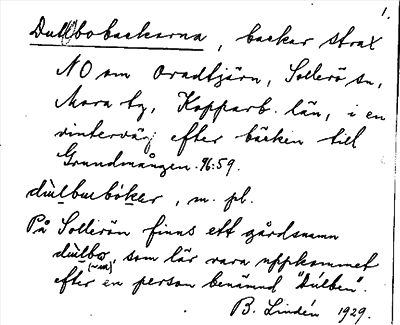 1.
Dullbobackarna, backar strax
NO om Oradtjärn, Sollerö sn,
Mora tg, Kopparb. län, i en
vinterväg efter bäcken till
Grundmången. 96:59.
dùlbubóker, m. pl.
På Sollerön finns ett gårdsnamn
dùlbo, som lär vara uppkommet
efter en person benämnd "Dúlben".
B. Lindén 1929.